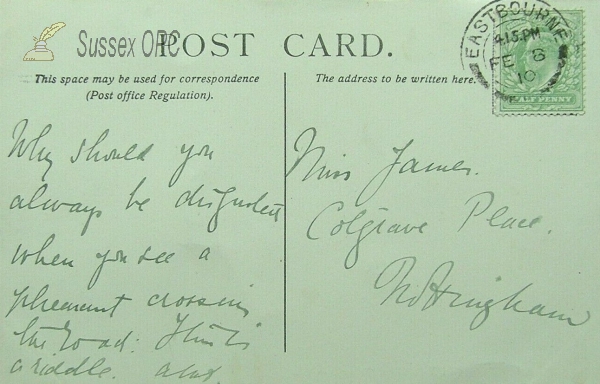 Sussex OPC
POST CARD.
This space may be used for correspondence
(Post office Regulation).
The address to be written here.
EASTBOURNE
4.15 PM
FE 8
10
HALF PENNY
Why should you
always be disgusted
when you see a
pheasant crossing
the road: This is
a riddle.
Miss James.
Colgrave Place.
Nottingham